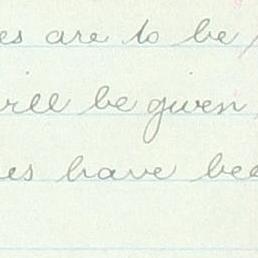 es are to be
will be given
es have bee